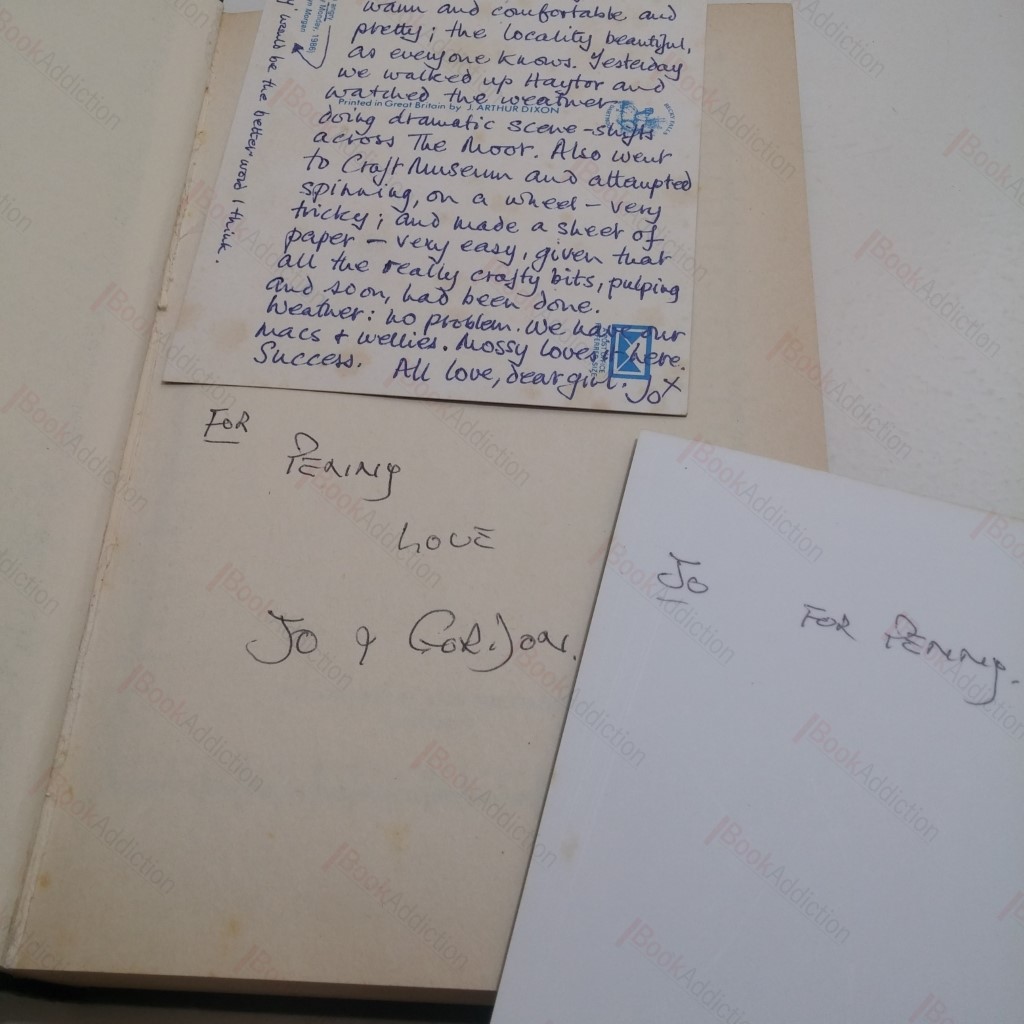 warm and comfortable and
pretty; the locality beautiful,
as everyone knows. Yesterday
we walked up Haytor and
watched the weather
Printed in Great Britain by J. ARTHUR DIXON
doing dramatic scene-shifts
across The Moor. Also went
to Craft Museum and attempted
spinning, on a wheel – very
tricky; and made a sheet of
paper – very easy, given that
all the really crafty bits, pulping
and soon, had been done.
Weather: no problem. We have our
macs & wellies. Mossy loves it here.
Success. All love, dear girl. Jo X
would be the better word I think.
FOR
PENNY
LOVE
JO & GORDON.
JO
FOR PENNY.
BookAddiction